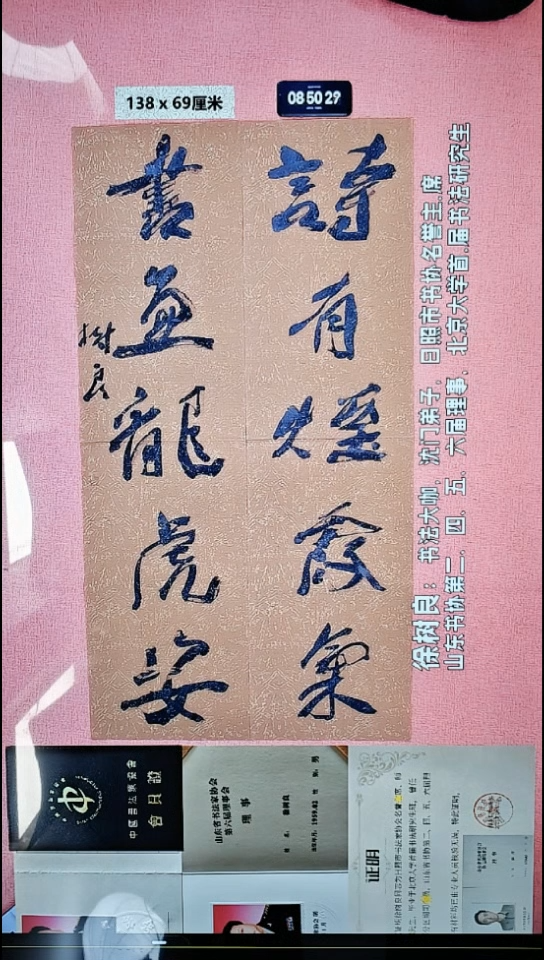 138 x 69厘米
08 50 29
詩有煙霞氣
書兼龍虎姿
樹良
徐树良：书法大咖，沈门弟子，日照市书协名誉主席
山东书协第二、四、五、六届理事，北京大学首届书法研究生
中國書法家協會
會員證
山东省书法家协会
第六届理事会
理事
证明